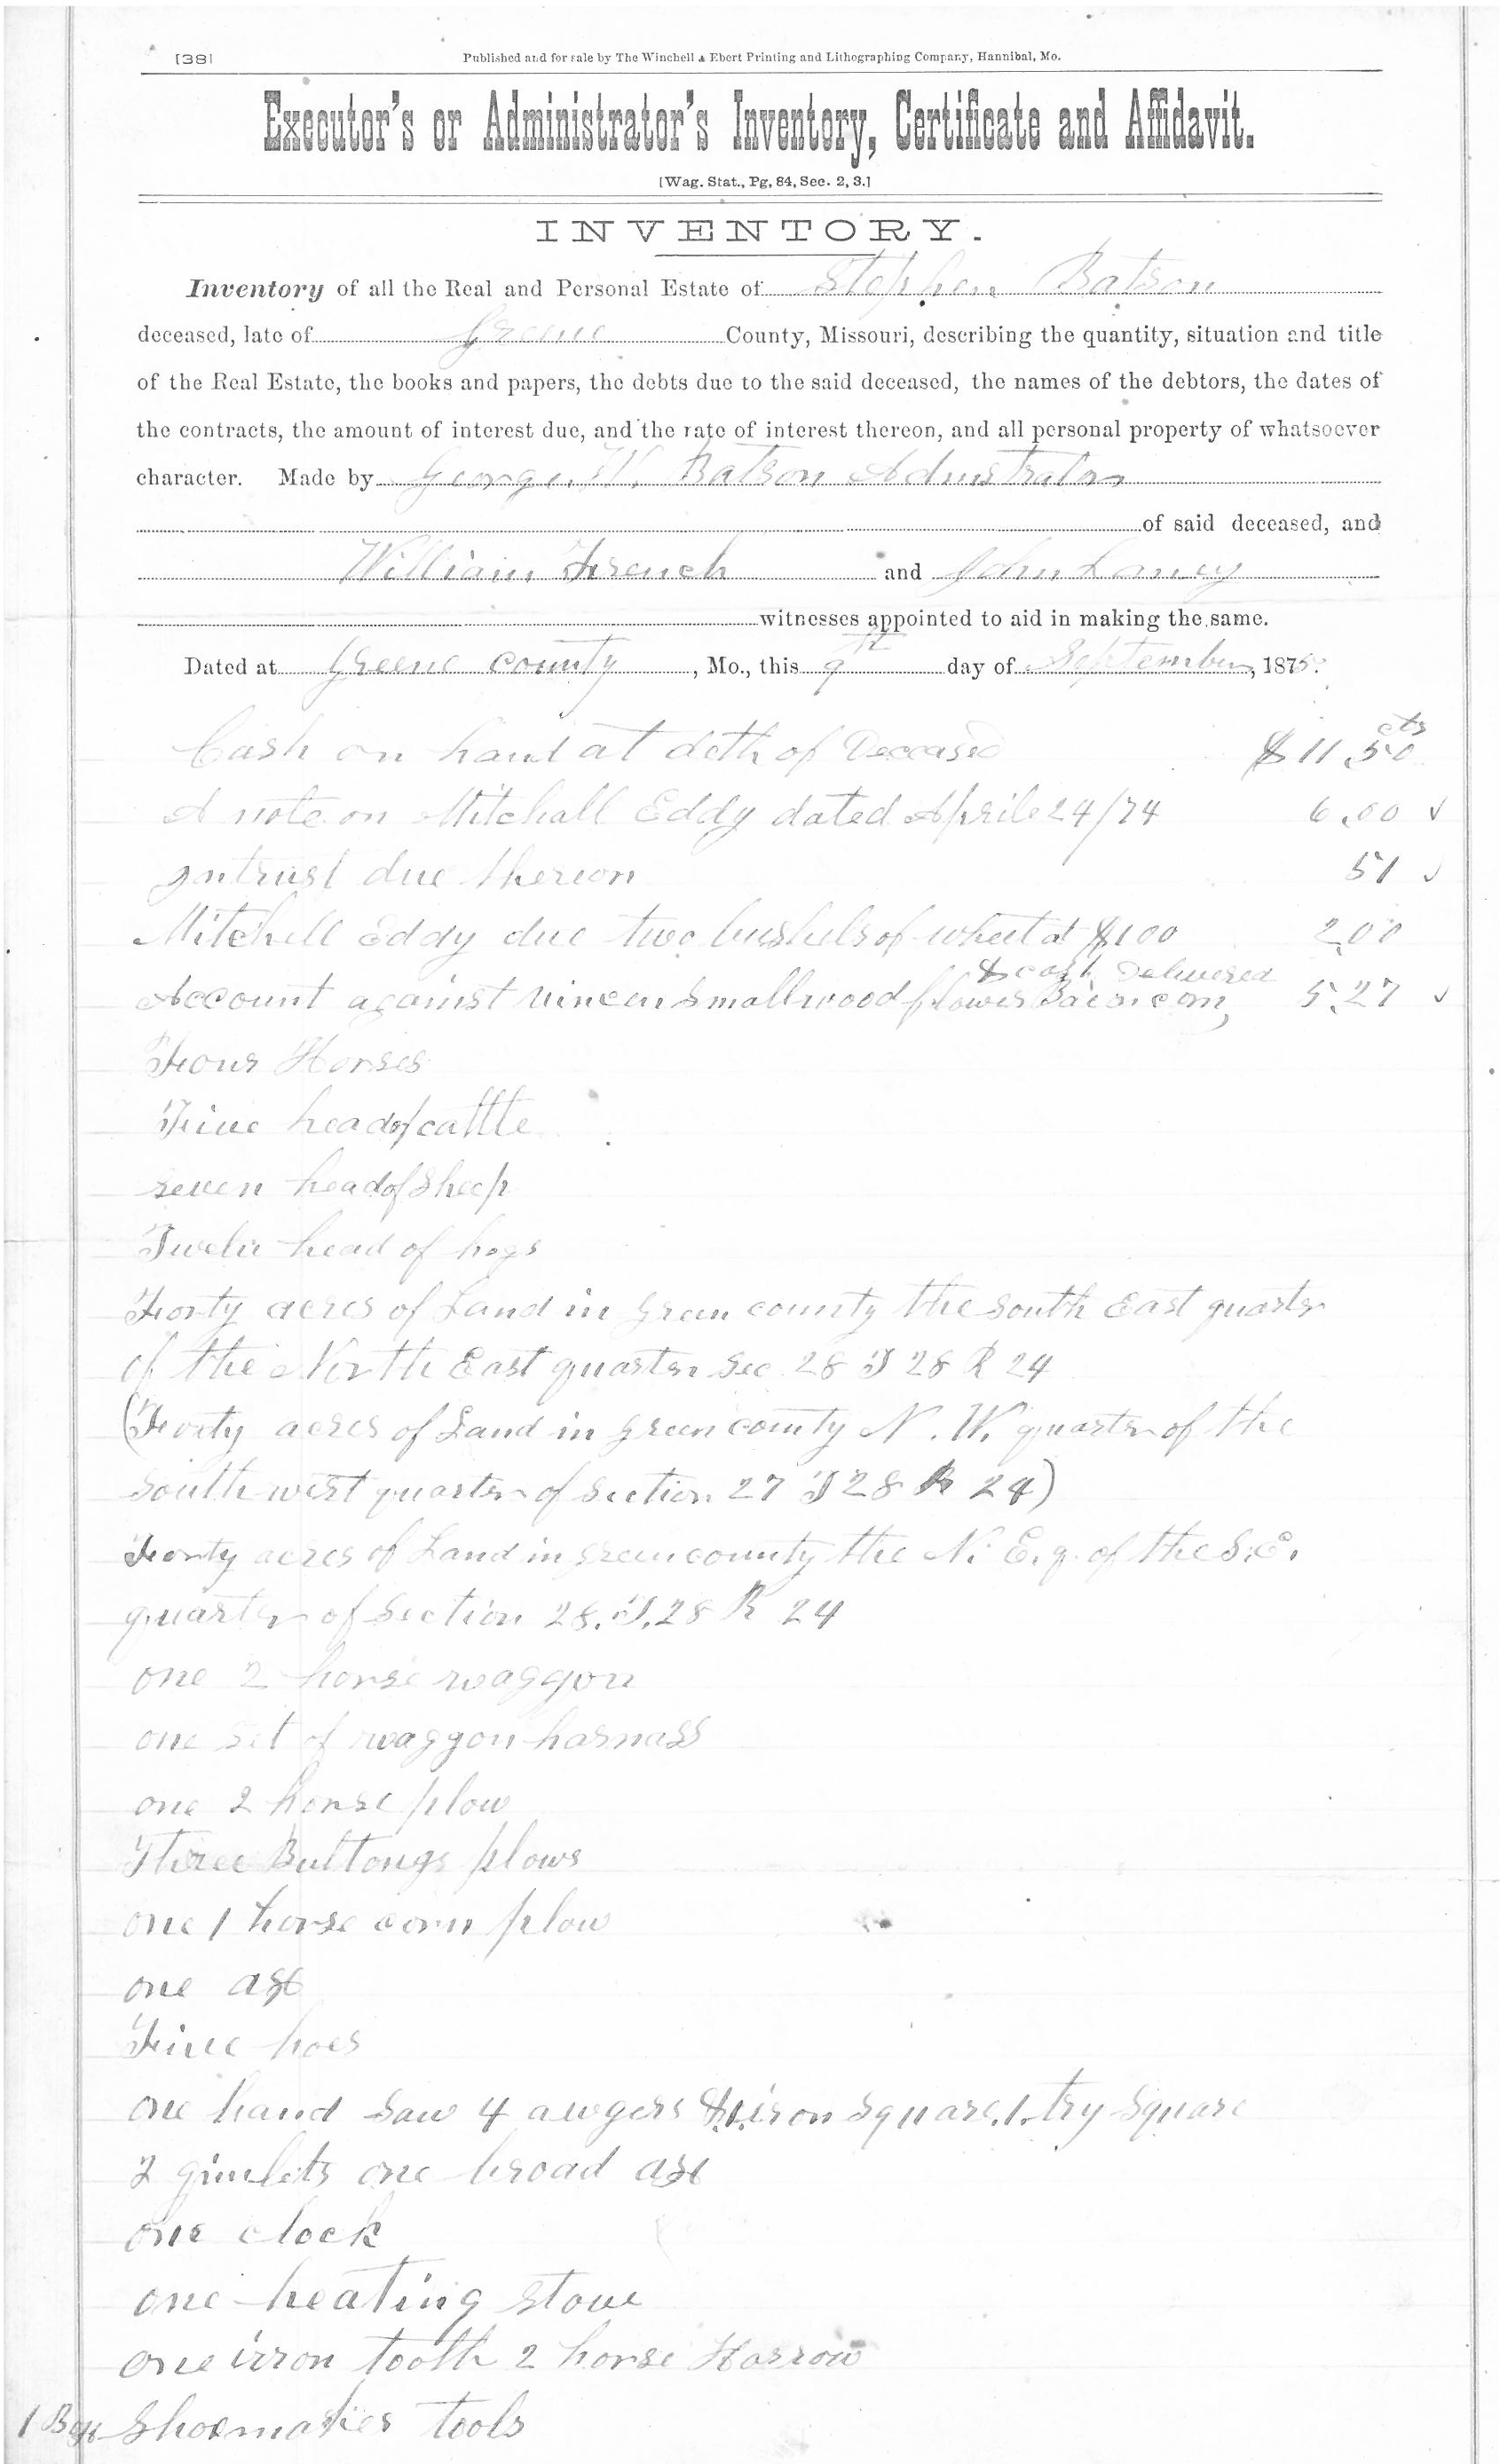 [38] Published and for sale by The Winchell & Ebert Printing and Lithographing Company, Hannibal, Mo.
Executor's or Administrator's Inventory, Certificate and Affidavit.
[Wag. Stat., Pg, 84, Sec. 2, 3.]
INVENTORY.
Inventory of all the Real and Personal Estate of Stephen Batson
deceased, late of Greene County, Missouri, describing the quantity, situation and title
of the Real Estate, the books and papers, the debts due to the said deceased, the names of the debtors, the dates of
the contracts, the amount of interest due, and the rate of interest thereon, and all personal property of whatsoever
character. Made by George W. Batson Admistrator
of said deceased, and
William French and John Laney
witnesses appointed to aid in making the same.
Dated at Greene county, Mo., this 9th day of September, 1875.
Cash on hand at deth of Deceased $11.50 cts
A note on Mitchall Eddy dated Aprile 24/74 6.00 ✓
Intrust due thereon 51 ✓
Mitchell Eddy due two bushels of wheet at $100 2.00
& cash Delivered
Account against vincen Smallwood flower Bacon corn, 5.27 ✓
Four Horses
Five head of cattle
seven head of Sheep
Twelve head of hogs
Forty acres of Land in green county the south East quarter
of the North East quarter Sec 28 T 28 R 24
(Forty acres of Land in green county N. W. quarter of the
south west quarter of section 27 T 28 R 24)
Forty acres of Land in green county the N. E. q. of the S. E.
quarter of Section 28. T. 28 R 24
one 2 horse waggon
one set of waggon harnass
one 2 horse plow
Three Bultongs plows
one 1 horse corn plow
one ax
Five hoes
one hand saw 4 awgers & 1. iron square. 1. try square
2 gimlets one broad ax
one clock
one heating stove
one irron tooth 2 horse Harrow
1 Box Shoemakies tools